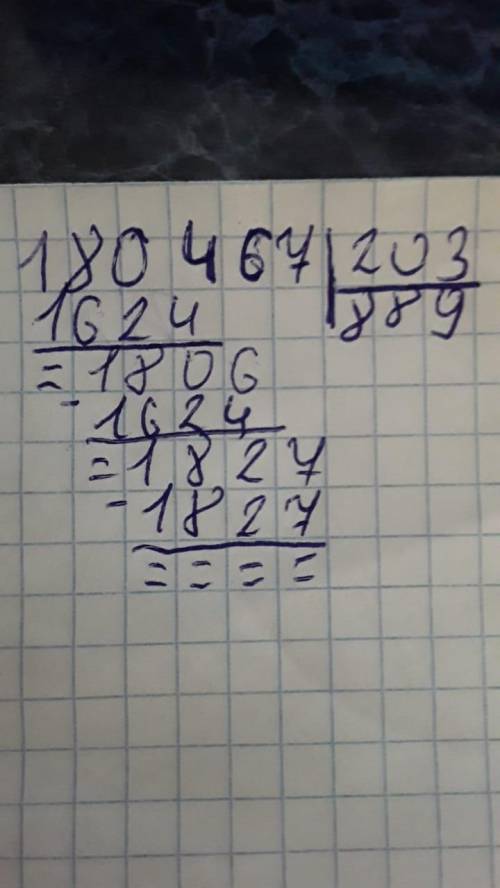 180467 203
1624 889
= 1806
- 1624
= 1827
- 1827
= = = =